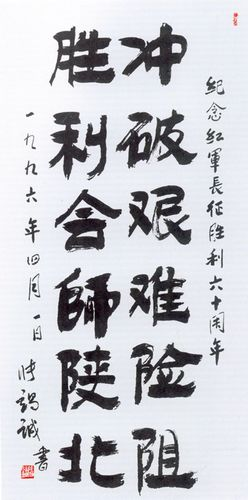 纪念红軍長征胜利六十周年
冲破艰难险阻
胜利会師陕北
一九九六年四月一日
书